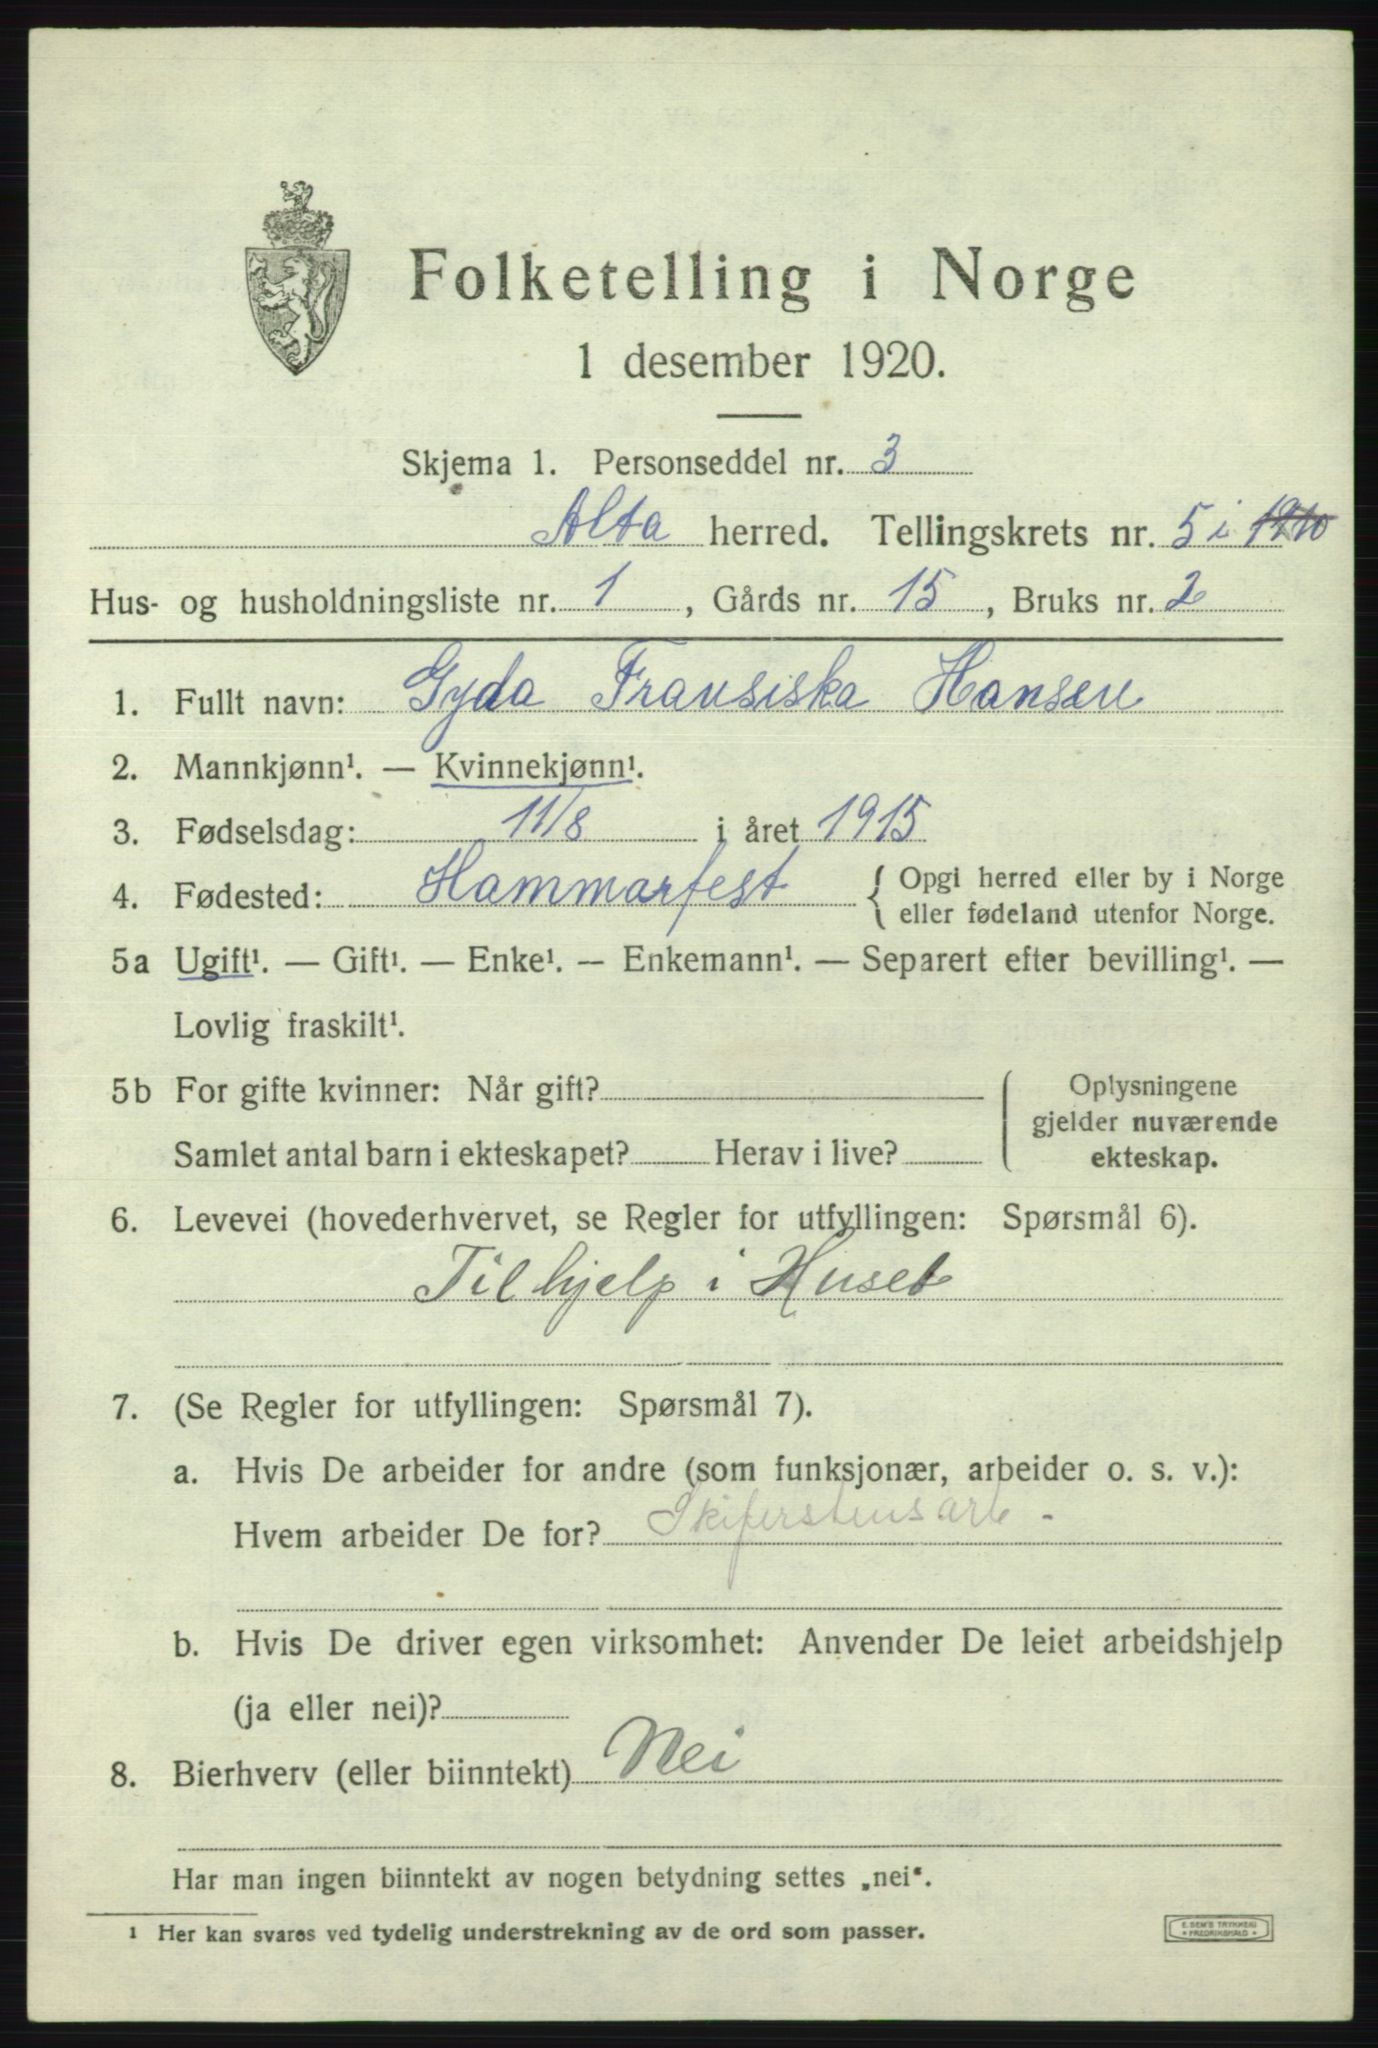 Folketelling i Norge
1 desember 1920.
Skjema 1. Personseddel nr. 3
Alta herred. Tellingskrets nr. 5 i 1910
Hus- og husholdningsliste nr. 1, Gårds nr. 15, Bruks nr. 2
1. Fullt navn: Gyda Fransiska Hansen
2. Mannkjønn¹. — Kvinnekjønn¹.
3. Fødselsdag: 11/8 i året 1915
4. Fødested: Hammarfest { Opgi herred eller by i Norge
eller fødeland utenfor Norge.
5a Ugift¹. — Gift¹. — Enke¹. — Enkemann¹. — Separert efter bevilling¹. —
Lovlig fraskilt¹.
5b For gifte kvinner: Når gift?
Samlet antal barn i ekteskapet? Herav i live?
Oplysningene
gjelder nuværende
ekteskap.
6. Levevei (hovederhvervet, se Regler for utfyllingen: Spørsmål 6).
Til hjelp i Huset
7. (Se Regler for utfyllingen: Spørsmål 7).
a. Hvis De arbeider for andre (som funksjonær, arbeider o. s. v.):
Hvem arbeider De for? Skiferstensarb -
b. Hvis De driver egen virksomhet: Anvender De leiet arbeidshjelp
(ja eller nei)?
8. Bierhverv (eller biinntekt) Nei
Har man ingen biinntekt av nogen betydning settes „nei“.
¹ Her kan svares ved tydelig understrekning av de ord som passer.
E. SEM'S TRYKKERI
FREDRIKSHALD